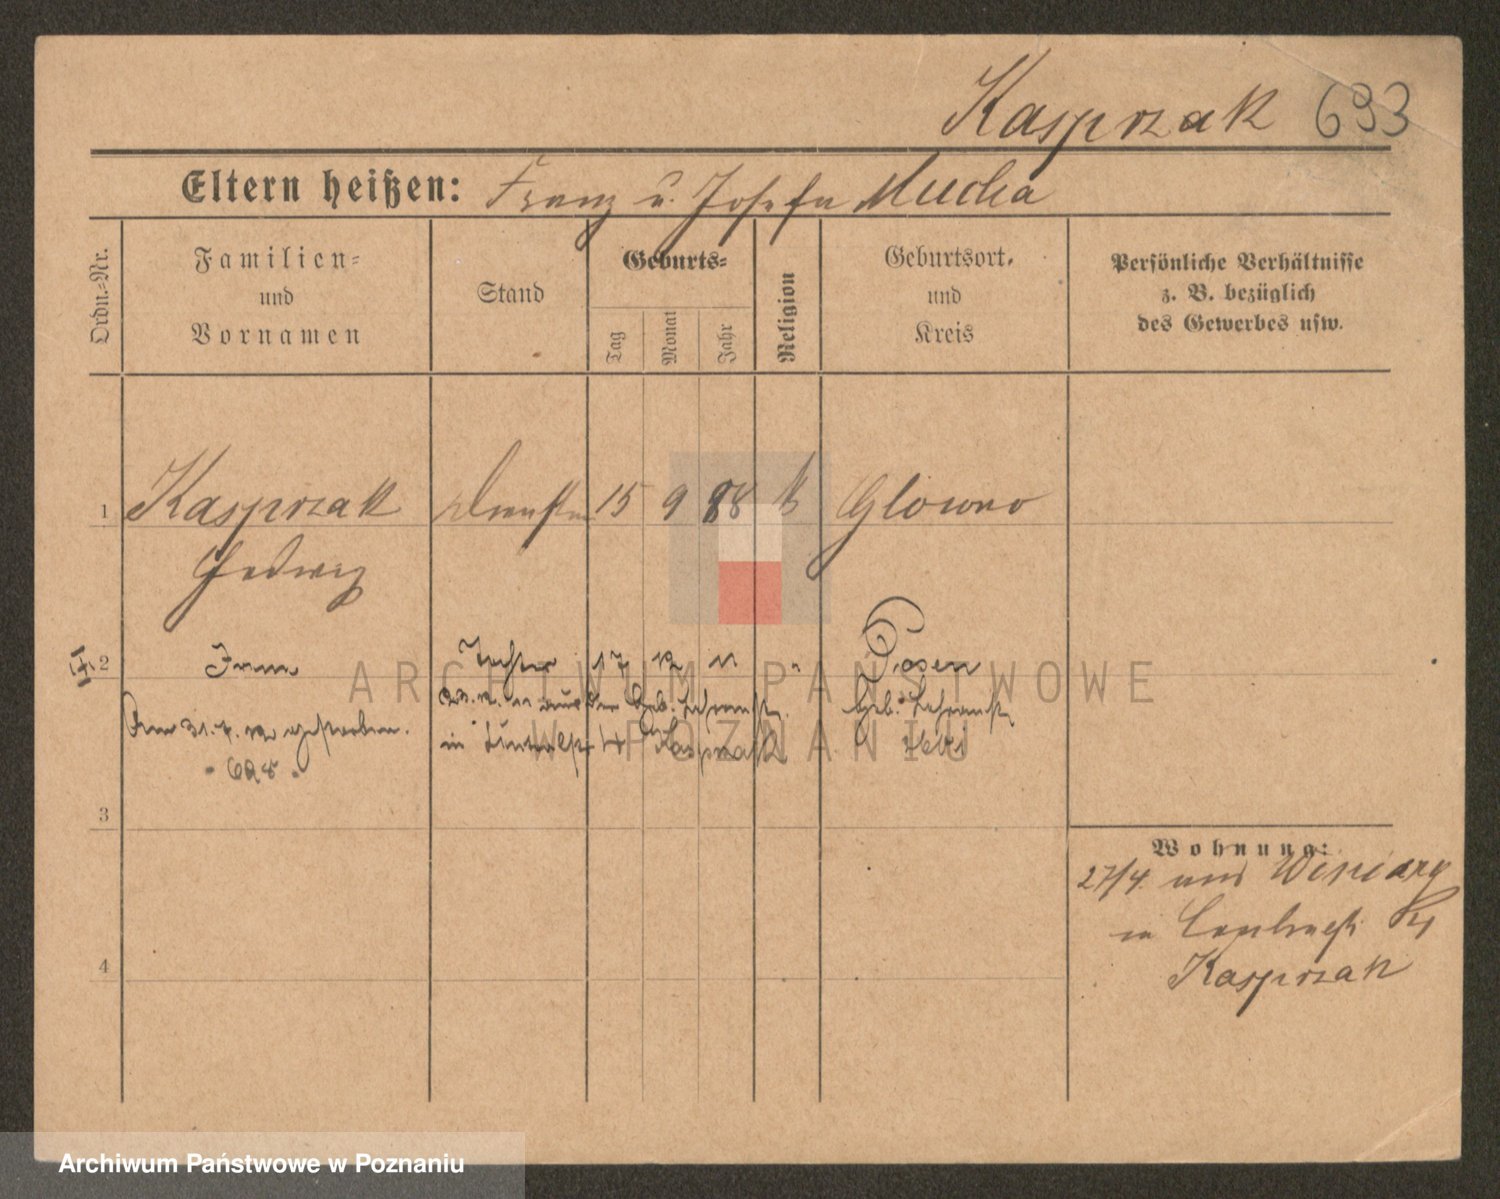 Kasprzak 693
Eltern heißen: Franz u. Josefa Mucha
Ordn.-Nr.
Familien- und Vornamen
Stand
Geburts-
Tag
Monat
Jahr
Religion
Geburtsort. und Kreis
Persönliche Verhältnisse
z. B. bezüglich
des Gewerbes usw.
1 Kasprzak 15 9 88 k Glowno
Hedwig
2 Tochter 17 12 11 " Posen
Am 31. 7. 12 gestorben.
in Kasprzak
3
Wohnung:
27/4. Winiary
in
Kasprzak
4
ARCHIWUM PAŃSTWOWE
W POZNANIU
Archiwum Państwowe w Poznaniu